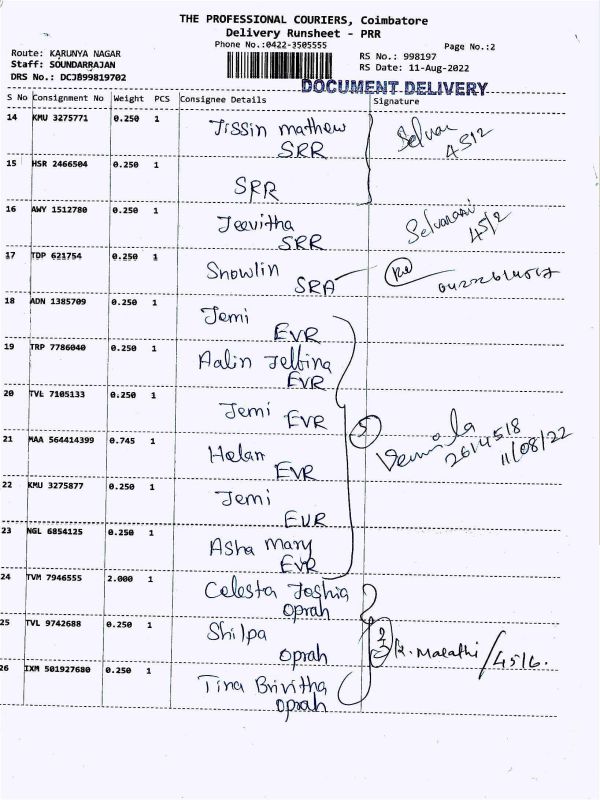 THE PROFESSIONAL COURIERS, Coimbatore
Delivery Runsheet - PRR
Phone No.:0422-3505555
Page No.:2
Route: KARUNYA NAGAR
Staff: SOUNDARRAJAN
DRS No.: DCJ899819702
RS No.: 998197
RS Date: 11-Aug-2022
DOCUMENT DELIVERY
S No Consignment No Weight PCS Consignee Details Signature
14 KMU 3275771 0.250 1 Jissin mathew
SRR
Selvan
4512
15 HSR 2466504 0.250 1
SRR
16 AWY 1512780 0.250 1 Jeevitha
SRR
Selvarani
45/2
17 TDP 621754 0.250 1 Snowlin
SRA
18 ADN 1385709 0.250 1 Jemi
EVR
19 TRP 7786040 0.250 1 Aalin Jelbina
EVR
20 TVL 7105133 0.250 1 Jemi EVR
21 MAA 564414399 0.745 1 Helan
EVR
2614518
11/08/22
22 KMU 3275877 0.250 1 Jemi
EVR
23 NGL 6854125 0.250 1 Asha Mary
EVR
24 TVM 7946555 2.000 1 Celesta Joshia
Oprah
25 TVL 9742688 0.250 1 Shilpa
Oprah
K. Malathi/4516.
26 IXM 501927680 0.250 1 Tina Brivitha
Oprah